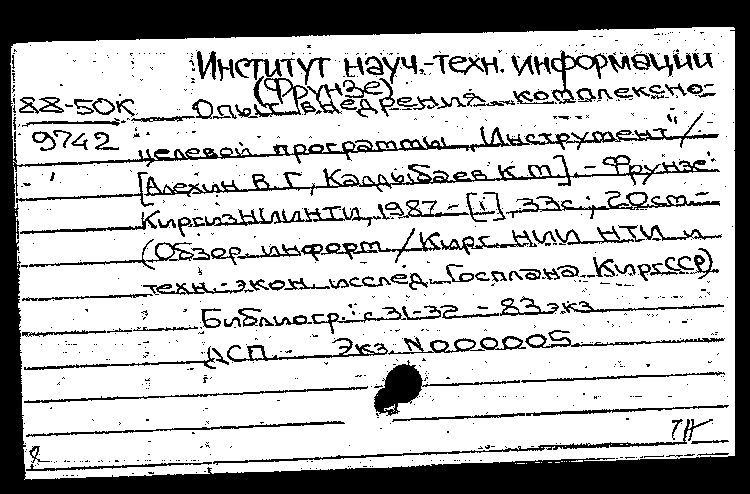 Институт науч.-техн. информации
(Фрунзе)
88-50К Опыт внедрения комплексно-
9742 целевой программы „Инструмент"/
[Алехин В.Г., Калдыбаев К.М.]. - Фрунзе:
КиргизНИИНТИ, 1987. - [1], 33с.; 20см. -
(Обзор. информ. / Кирг. НИИ НТИ и
техн.-экон. исслед. Госплана КиргССР)
Библиогр.: с 31-32 - 83 экз
ДСП. - Экз. N000005